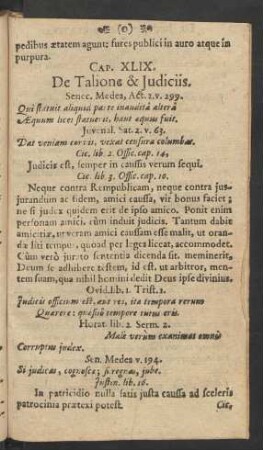 (0)
pedibus ætatem agunt; fures publici in auro atque in
purpura.
CAP. XLIX.
De Talione & Judiciis.
Senec. Medea, Act. 2. v. 299.
Qui statuit aliquid parte inaudita alterâ
Æquum licet statuerit, haut æquus fuit.
Juvenal. Sat. 2. v. 63.
Dat veniam corvis, vexat censura columbas.
Cic. lib. 2. Offic. cap. 14.
Judicis est, semper in causis verum sequi.
Cic. lib. 3. Offic. cap. 10.
Neque contra Rempublicam, neque contra jus-
jurandum ac fidem, amici caussa, vir bonus faciet;
ne si judex quidem erit de ipso amico. Ponit enim
personam amici, cùm induit judicis. Tantum dabit
amicitiæ, ut veram amici caussam esse malit, ut oran-
dæ liti tempus, quoad per leges liceat, accommodet.
Cùm verò jurato sententia dicenda sit, meminerit,
Deum se adhibere testem, id est, ut arbitror, men-
tem suam, qua nihil homini dedit Deus ipse divinius.
Ovid. lib. 1. Trist. 1.
Judicis officium est, aut res, ita tempora rerum
Quærere: quæsito tempore tutus eris.
Horat. lib. 2. Serm. 2.
Malè verum examinat omnis
Corruptus judex.
Sen. Medea v. 194.
Si judicas, cognosce; si regnas, jube.
Justin. lib. 16.
In patricidio nulla satis justa caussa ad sceleris
patrocinia prætexi potest.
Cic.